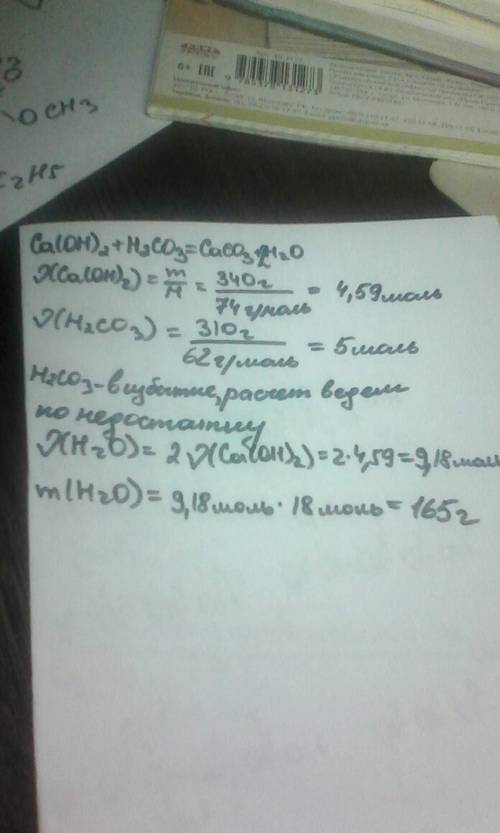 OCH3
C2H5
6+ EAC
Ca(OH)2 + H2CO3 = CaCO3 + 2H2O
ν(Ca(OH)2) = m/M = 340г/74г/моль = 4,59моль
ν(H2CO3) = 310г/62г/моль = 5моль
H2CO3 - в избытке, расчет ведем
по недостатку
ν(H2O) = 2ν(Ca(OH)2) = 2·4,59 = 9,18моль
m(H2O) = 9,18моль · 18моль = 165г